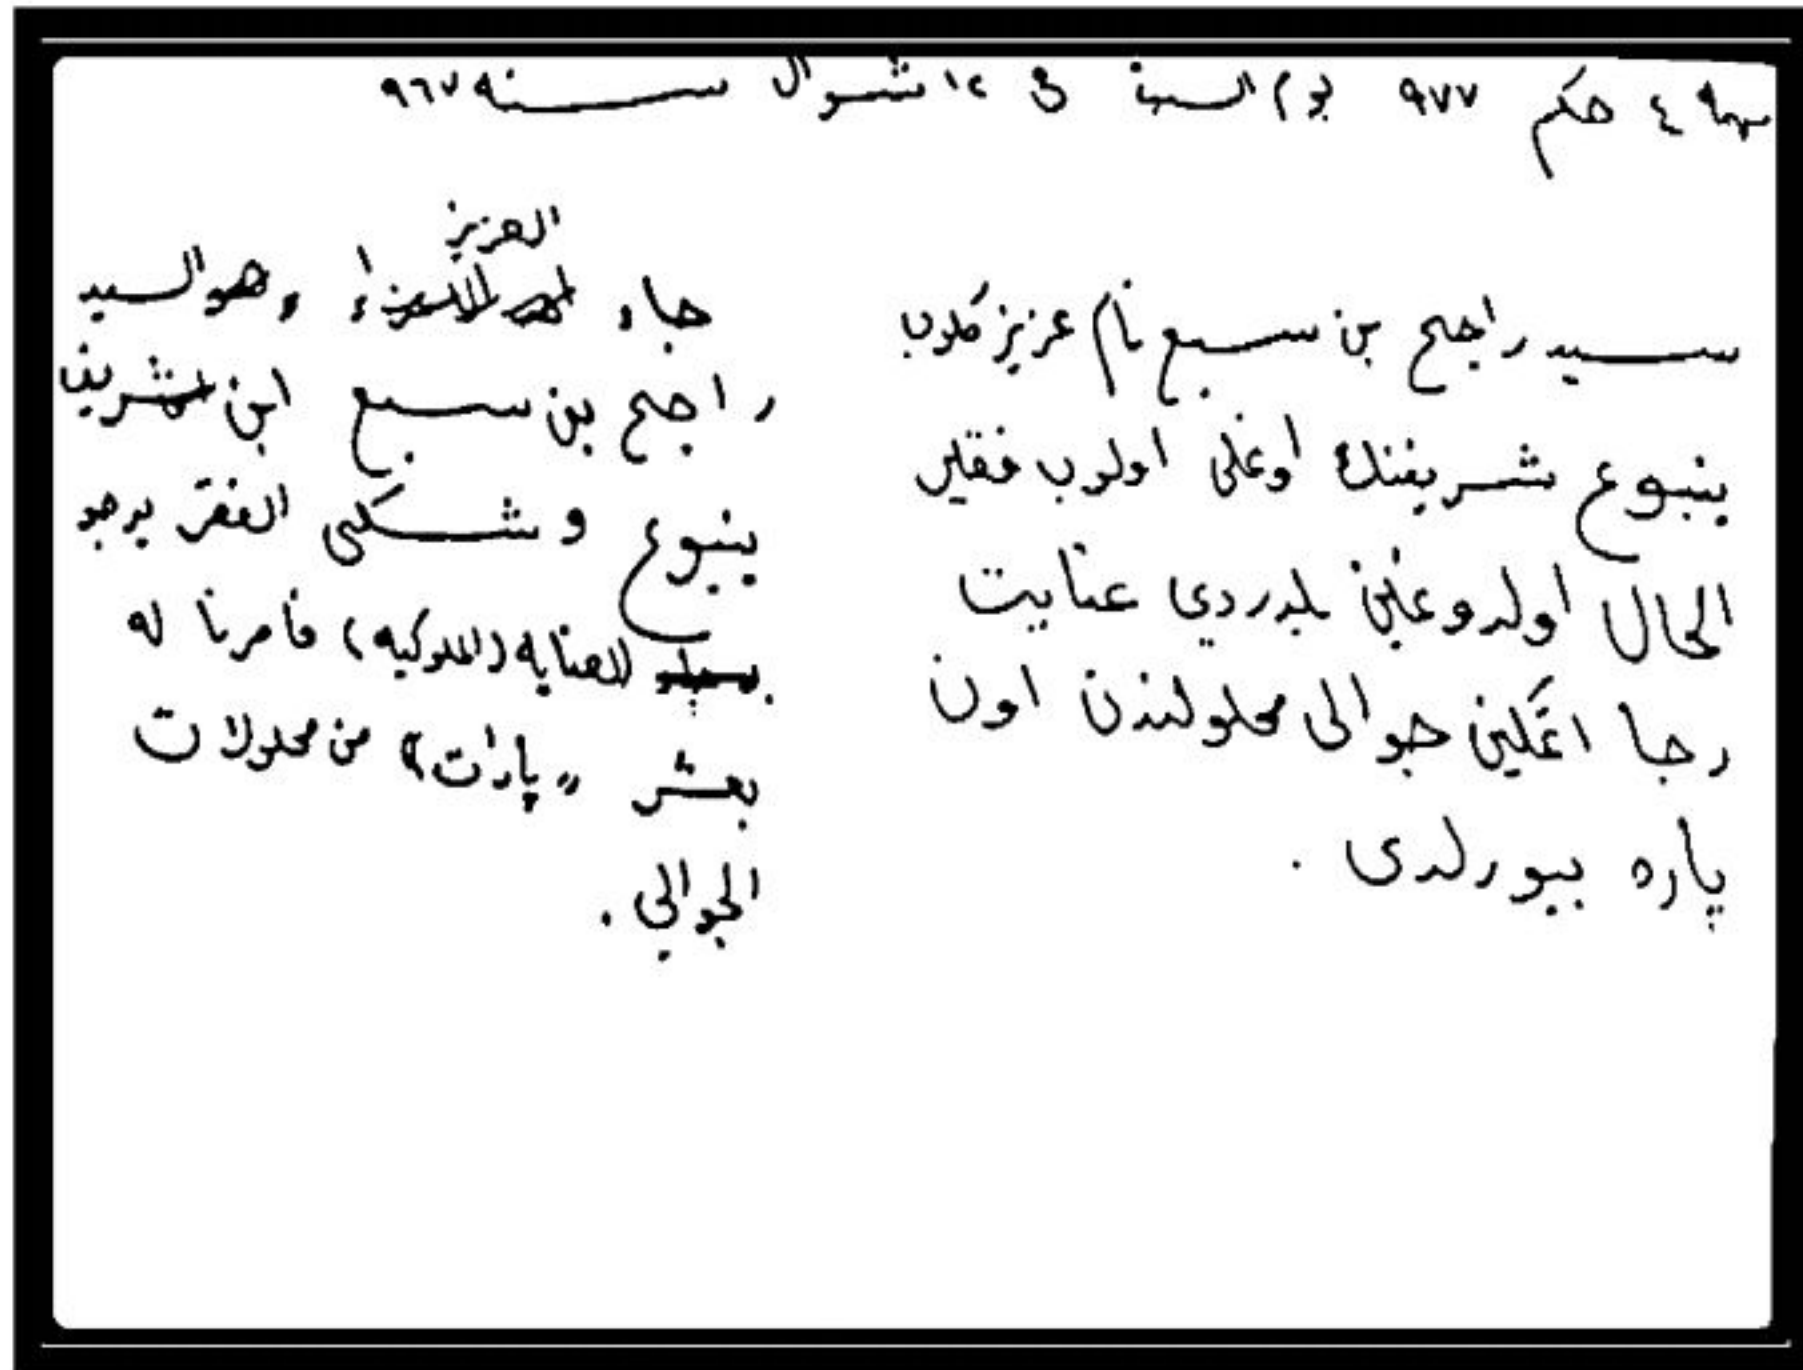 مهمه ٤ حكم ٩٧٧ يوم السبت في ١٢ شوال سنه ٩٦٧
سيد راجح بن سبع نام عزيز كلوب
ينبوع شريفنك اوغلى اولوب فقير
الحال اولدوغين بلدردي عنايت
رجا اتمكين جوالى محلولندن اون
پاره بيورلدى .
العزيز
جاء وهو السيد
راجح بن سبع ابن شريف
ينبوع وشكى الفقر يرجو
العنايه (الملوكيه) فامرنا له
بعشر "پارات" من محلولات
الجوالي .